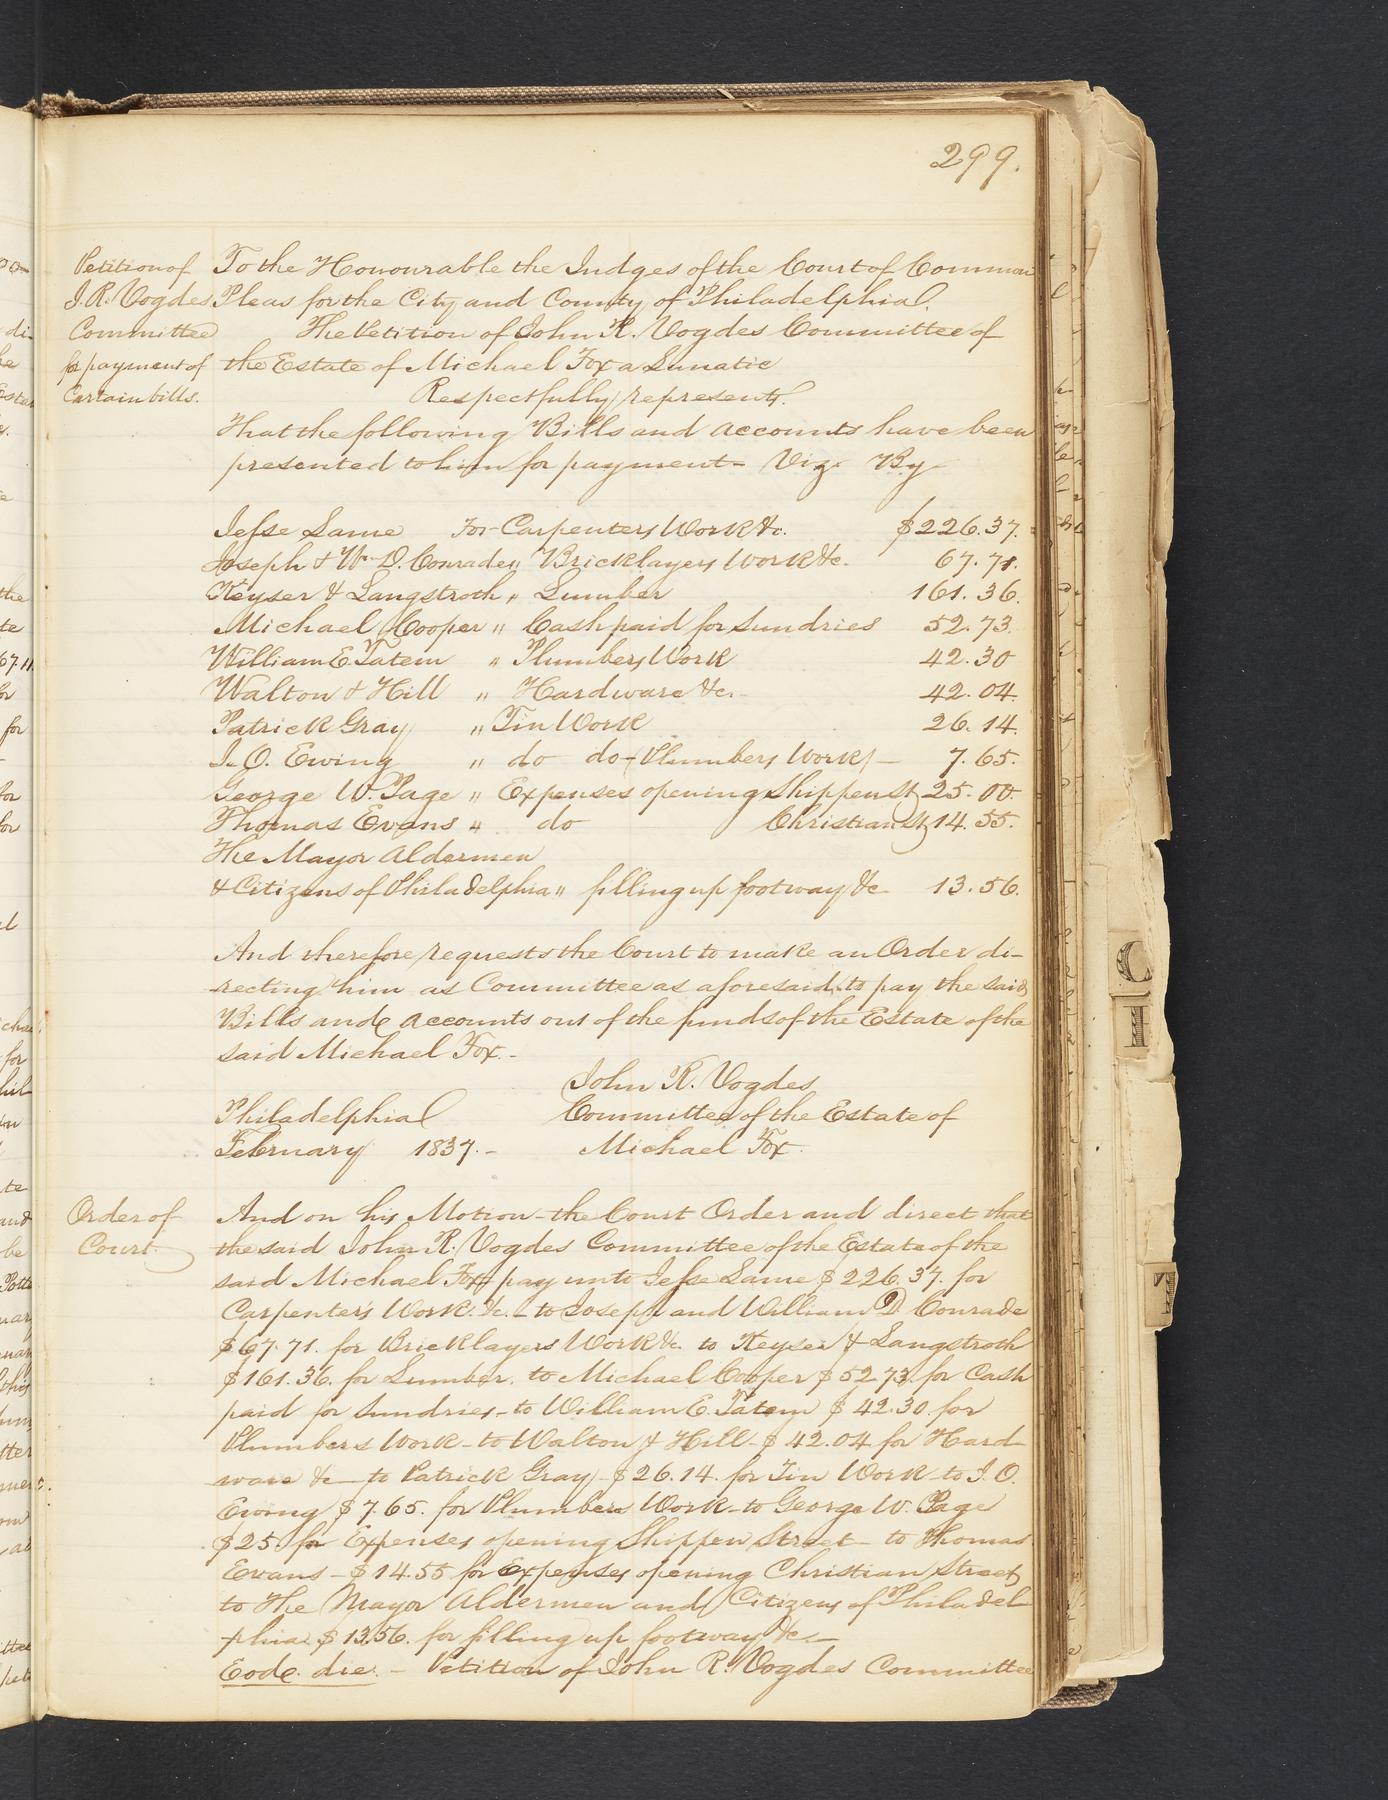 299.
Petition of
J. R. Vogdes
Committee
for payment of
Certain bills.
To the Honourable the Judges of the Court of Common
Pleas for the City and County of Philadelphia.
The Petition of John R. Vogdes Committee of
the Estate of Michael Fox a Lunatic
Respectfully represents.
That the following Bills and accounts have been
presented to him for payment - Viz. By
Jesse Lame For Carpenters Work &c. $226.37.
Joseph & Wm D. Conrade " Bricklayers Work &c. 67.71.
Keyser & Langstroth " Lumber 161.36.
Michael Cooper " Cash paid for Sundries 52.73.
William E. Tatem " Plumbers Work 42.30
Walton & Hill " Hardware &c. 42.04.
Patrick Gray " Tin Work 26.14.
J. O. Ewing " do do (Plumbers Work) 7.65.
George W. Page " Expenses opening Shippen St 25.00.
Thomas Evans " do Christian St 14.55.
The Mayor Aldermen
& Citizens of Philadelphia " filling up footway &c 13.56.
And therefore requests the Court to make an Order di-
recting him as Committee as aforesaid to pay the said
Bills and accounts out of the funds of the Estate of the
said Michael Fox.-
John R. Vogdes
Philadelphia Committee of the Estate of
February 1837.- Michael Fox.
Order of
Court.
And on his Motion the Court Order and direct that
the said John R. Vogdes Committee of the Estate of the
said Michael Fox pay unto Jesse Lame $226.37. for
Carpenter's Work. &c. - to Joseph and William D. Conrade
$67.71. for Bricklayers Work &c. to Keyser & Langstroth
$161.36. for Lumber. to Michael Cooper $52.73. for Cash
paid for Sundries - to William E. Tatem $42.30 for
Plumbers Work - to Walton & Hill - $42.04 for Hard
ware &c - to Patrick Gray - $26.14. for Tin Work - to J. O.
Ewing $7.65. for Plumbers Work - to George W. Page
$25 for Expenses opening Shippen Street - to Thomas
Evans - $14.55 for Expenses opening Christian Street
to The Mayor Aldermen and Citizens of Philadel
phia $13.56. for filling up footway &c. -
Eode. die. - Petition of John R. Vogdes Committee